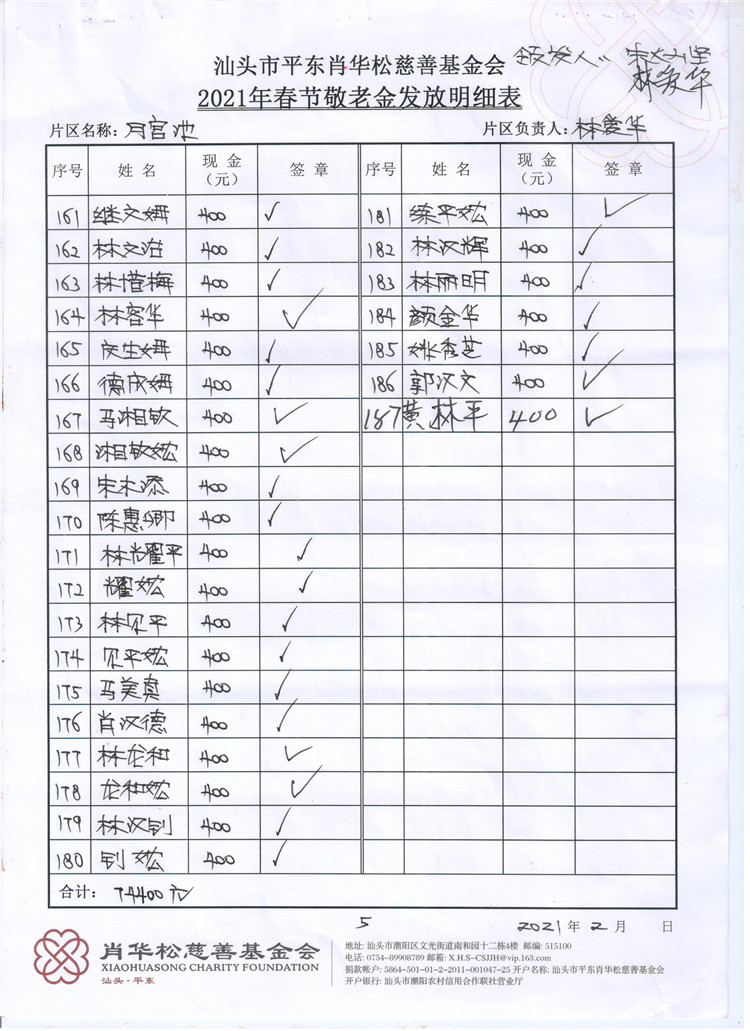 汕头市平东肖华松慈善基金会
领发人:
林爱华
2021年春节敬老金发放明细表
片区名称: 月宫池 片区负责人: 林爱华
序号 姓名 现金(元) 签章 序号 姓名 现金(元) 签章
161 继文姆 400 ✓ 181 平 400 ✓
162 林文浩 400 ✓ 182 林汉辉 400 ✓
163 林惜梅 400 ✓ 183 林丽明 400 ✓
164 林容华 400 ✓ 184 颜金华 400 ✓
165 庆生姆 400 ✓ 185 姚香芝 400 ✓
166 德成姆 400 ✓ 186 郭汉文 400 ✓
167 马湘钦 400 ✓ 187 黄林平 400 ✓
168 湘钦 400 ✓
169 宋木添 400 ✓
170 陈惠卿 400 ✓
171 林光耀平 400 ✓
172 耀 400 ✓
173 林见平 400 ✓
174 见平 400 ✓
175 马美真 400 ✓
176 肖汉德 400 ✓
177 林龙和 400 ✓
178 龙和 400 ✓
179 林汉钊 400 ✓
180 钊 400 ✓
合计: 74400元
5 2021年2月 日
肖华松慈善基金会
XIAOHUASONG CHARITY FOUNDATION
汕头·平东
地址: 汕头市潮阳区文光街道南和园十二栋4楼 邮编: 515100
电话: 0754-89908789 邮箱: X.H.S-CSJJH@vip.163.com
捐款帐户: 5864-501-01-2-2011-001047-25 开户名称: 汕头市平东肖华松慈善基金会
开户银行: 汕头市潮阳农村信用合作联社营业厅